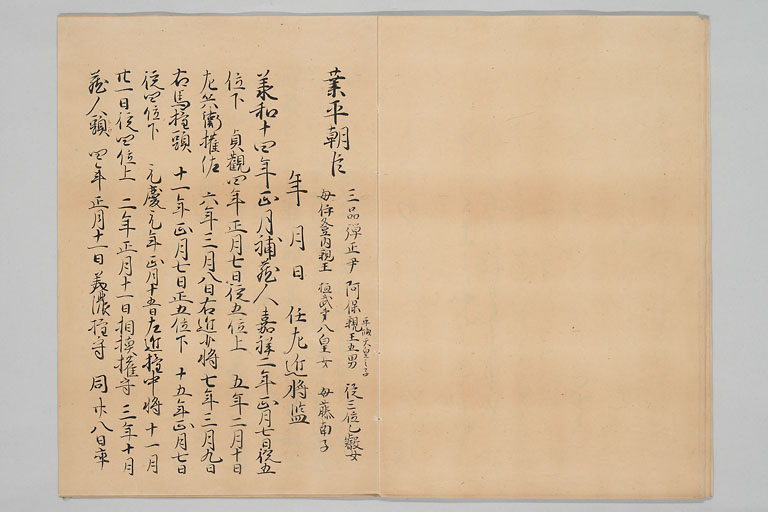 業平朝臣
三品弾正尹 阿保親王五男
平城天皇之子
従三位乙叡女
母伊登内親王 桓武第八皇女 母藤南子
年月日 任左近将監
承和十四年正月補蔵人嘉祥二年正月七日従五
位下 貞観四年正月七日従五位上 五年二月十日
左兵衛権佐 六年三月八日右近少将七年三月九日
右馬権頭 十一年正月七日正五位下 十五年正月七日
従四位下 元慶元年正月十五日左近権中将 十一月
廿一日従四位上 二年正月十一日相模権守 三年十月
蔵人頭 四年正月十一日美濃権守 同廿八日卒